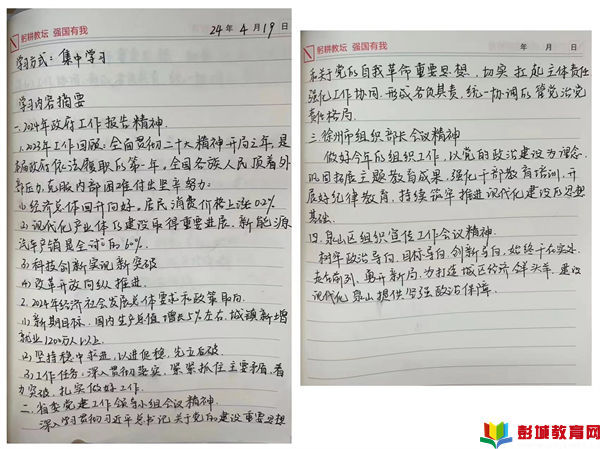 躬耕教坛 强国有我
24年4月19日
学习方式：集中学习
学习内容摘要
一.2024年政府工作报告精神
1.2023年工作回顾：全面贯彻二十大精神开局之年，是
本届政府依法履职的第一年，全国各族人民顶着外
部压力，克服内部困难付出坚辛努力：
(1)经济总体回升向好，居民消费价格上涨0.2%
(2)现代化产业体系建设取得重要进展，新能源
汽车产销是全球的60%
(3)科技创新实现新突破
(4)改革开放向纵推进.
2.2024年经济社会发展总体要求和政策取向
(1)新期目标，国内生产总值增长5%左右，城镇新增
就业1200万人以上
(2)坚持稳中求进，以进促稳，先立后破.
(3)工作任务：深入贯彻落实，紧紧抓住主要矛盾，着
力突破，扎实做好工作.
二.省委党建工作领导小组会议精神.
深入学习贯彻习近平总书记关于党的建设重要思想
躬耕教坛 强国有我
年 月 日
和关于党的自我革命重要思想，切实扛起主体责任
强化工作协同，形成各负其责，统一协调的管党治党
责任格局.
三.徐州市组织部长会议精神
做好今年的组织工作，以党的政治建设为理念，
巩固拓展主题教育成果，强化干部教育培训，开
展好纪律教育，持续筑牢推进现代化建设思想
基础.
四.泉山区组织宣传工作会议精神.
树牢政治导向，目标导向，创新导向，始终干在实处，
走在前列，勇开新局，为打造城区经济领头羊，建设
现代化泉山提供坚强政治保障.
彭城教育网